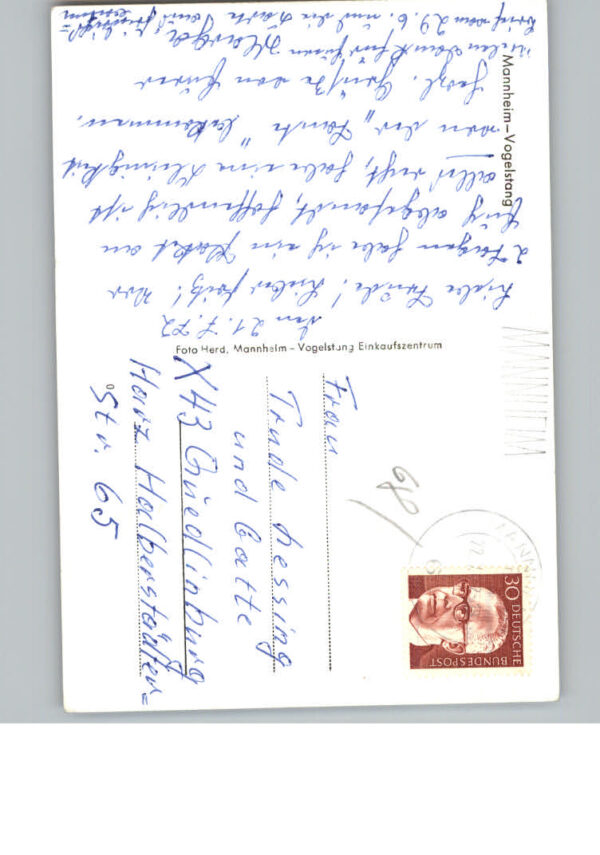 Mannheim – Vogelstang
den 21.7.72
Liebe Trude! Lieber Fritz! Vor
2 Tagen habe ich ein Paket an
Euch abgesandt, hoffentlich ist
alles recht, habe eine Kleinigkeit
von der „Tante" bekommen.
Herzl. Grüße von Eurer
vielen Dank für Euren
Brief vom 29.6. und die Karte
Foto Herd, Mannheim – Vogelstang Einkaufszentrum
Frau
Trude Lessing
und Gatte
X43 Quedlinburg
Harz Halberstädter=
Str. 65
68/
MANNHEIM
30 DEUTSCHE
BUNDESPOST